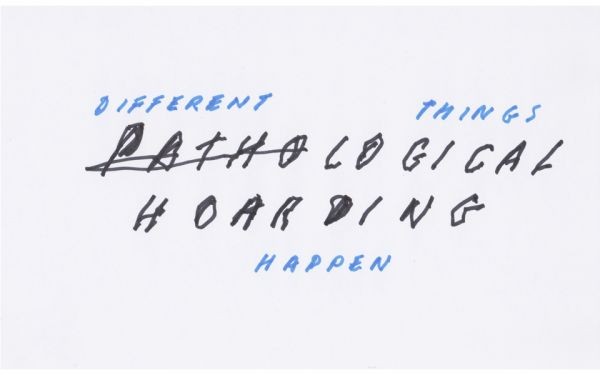 DIFFERENT THINGS
PATHOLOGICAL
HOARDING
HAPPEN